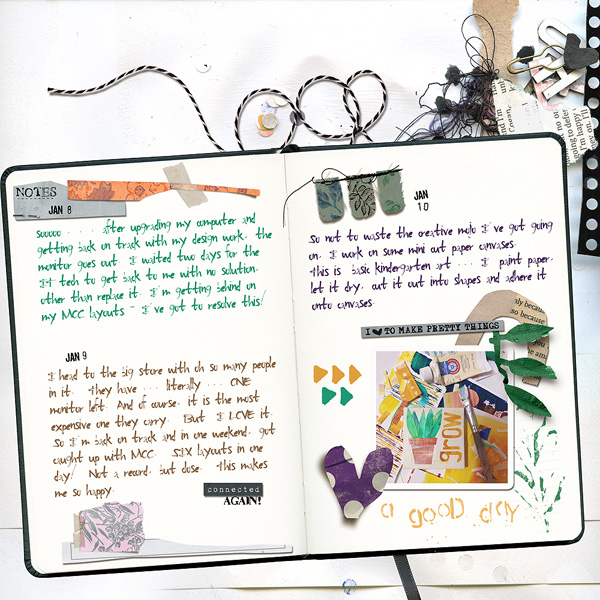 NOTES
JAN 8
Sooooo . . . . . after upgrading my computer and
getting back on track with my design work, the
monitor goes out. I waited two days for the
IT tech to get back to me with no solution,
other than replace it. I'm getting behind on
my MCC layouts - I've got to resolve this!
JAN 9
I head to the big store with oh so many people
in it. They have . . . literally . . . ONE
monitor left. And of course, it is the most
expensive one they carry. But I LOVE it.
So I'm back on track and in one weekend, got
caught up with MCC. SIX layouts in one
day! Not a record, but close. This makes
me so happy.
connected
AGAIN!
JAN
10
So not to waste the creative mojo I've got going
on, I work on some mini art paper canvases.
This is basic kindergarten art . . . I paint paper,
let it dry, cut it out into shapes and adhere it
onto canvases.
I TO MAKE PRETTY THINGS
grow
a good day